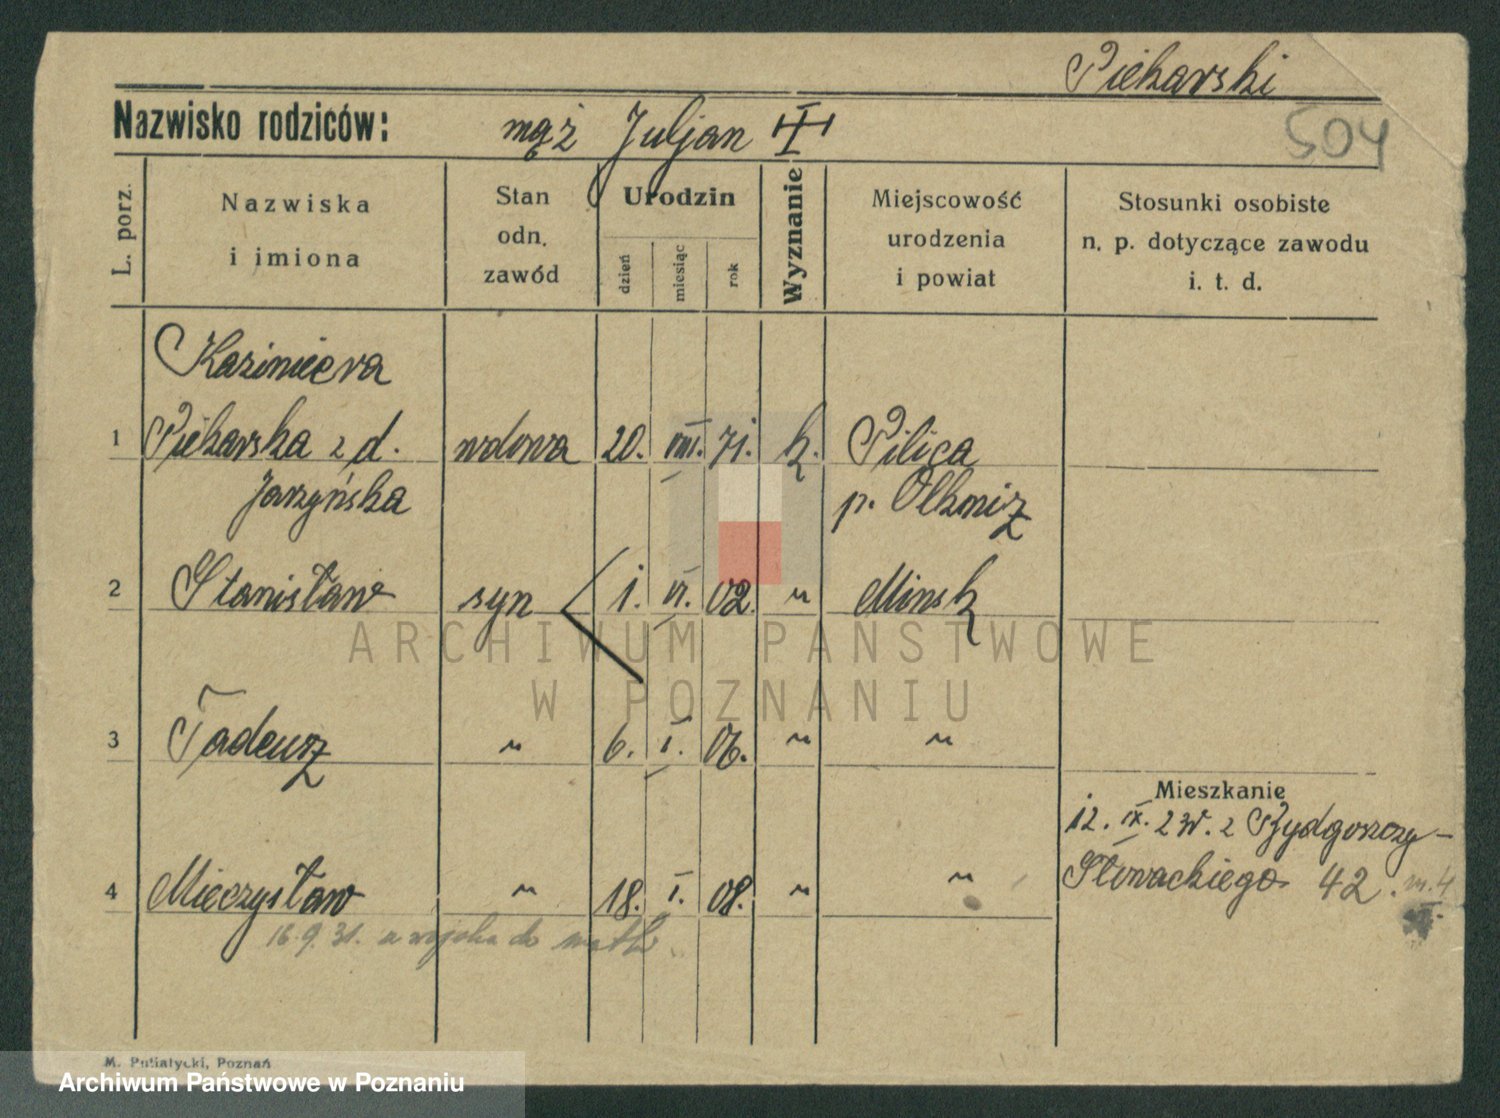 Piekarski
Nazwisko rodziców: mąż Juljan
504
L. porz.
Nazwiska i imiona
Stan odn. zawód
Urodzin
dzień miesiąc rok
Wyznanie
Miejscowość urodzenia i powiat
Stosunki osobiste n. p. dotyczące zawodu i. t. d.
Kazimiera
1 Piekarska z d. wdowa 20. VIII. 71. k. Pilica
Jarzyńska p. Olkusz
2 Stanisław syn 1. VI. 02. " Minsk
ARCHIWUM PAŃSTWOWE
W POZNANIU
3 Tadeusz " 6. I. 06. " "
Mieszkanie
12. IX. 23r. z Bydgoszczy –
4 Mieczysław " 18. I. 08. " " Słowackiego 42. m. 4
16.9.31. z wojska do matk
M. Putiatycki, Poznań
Archiwum Państwowe w Poznaniu